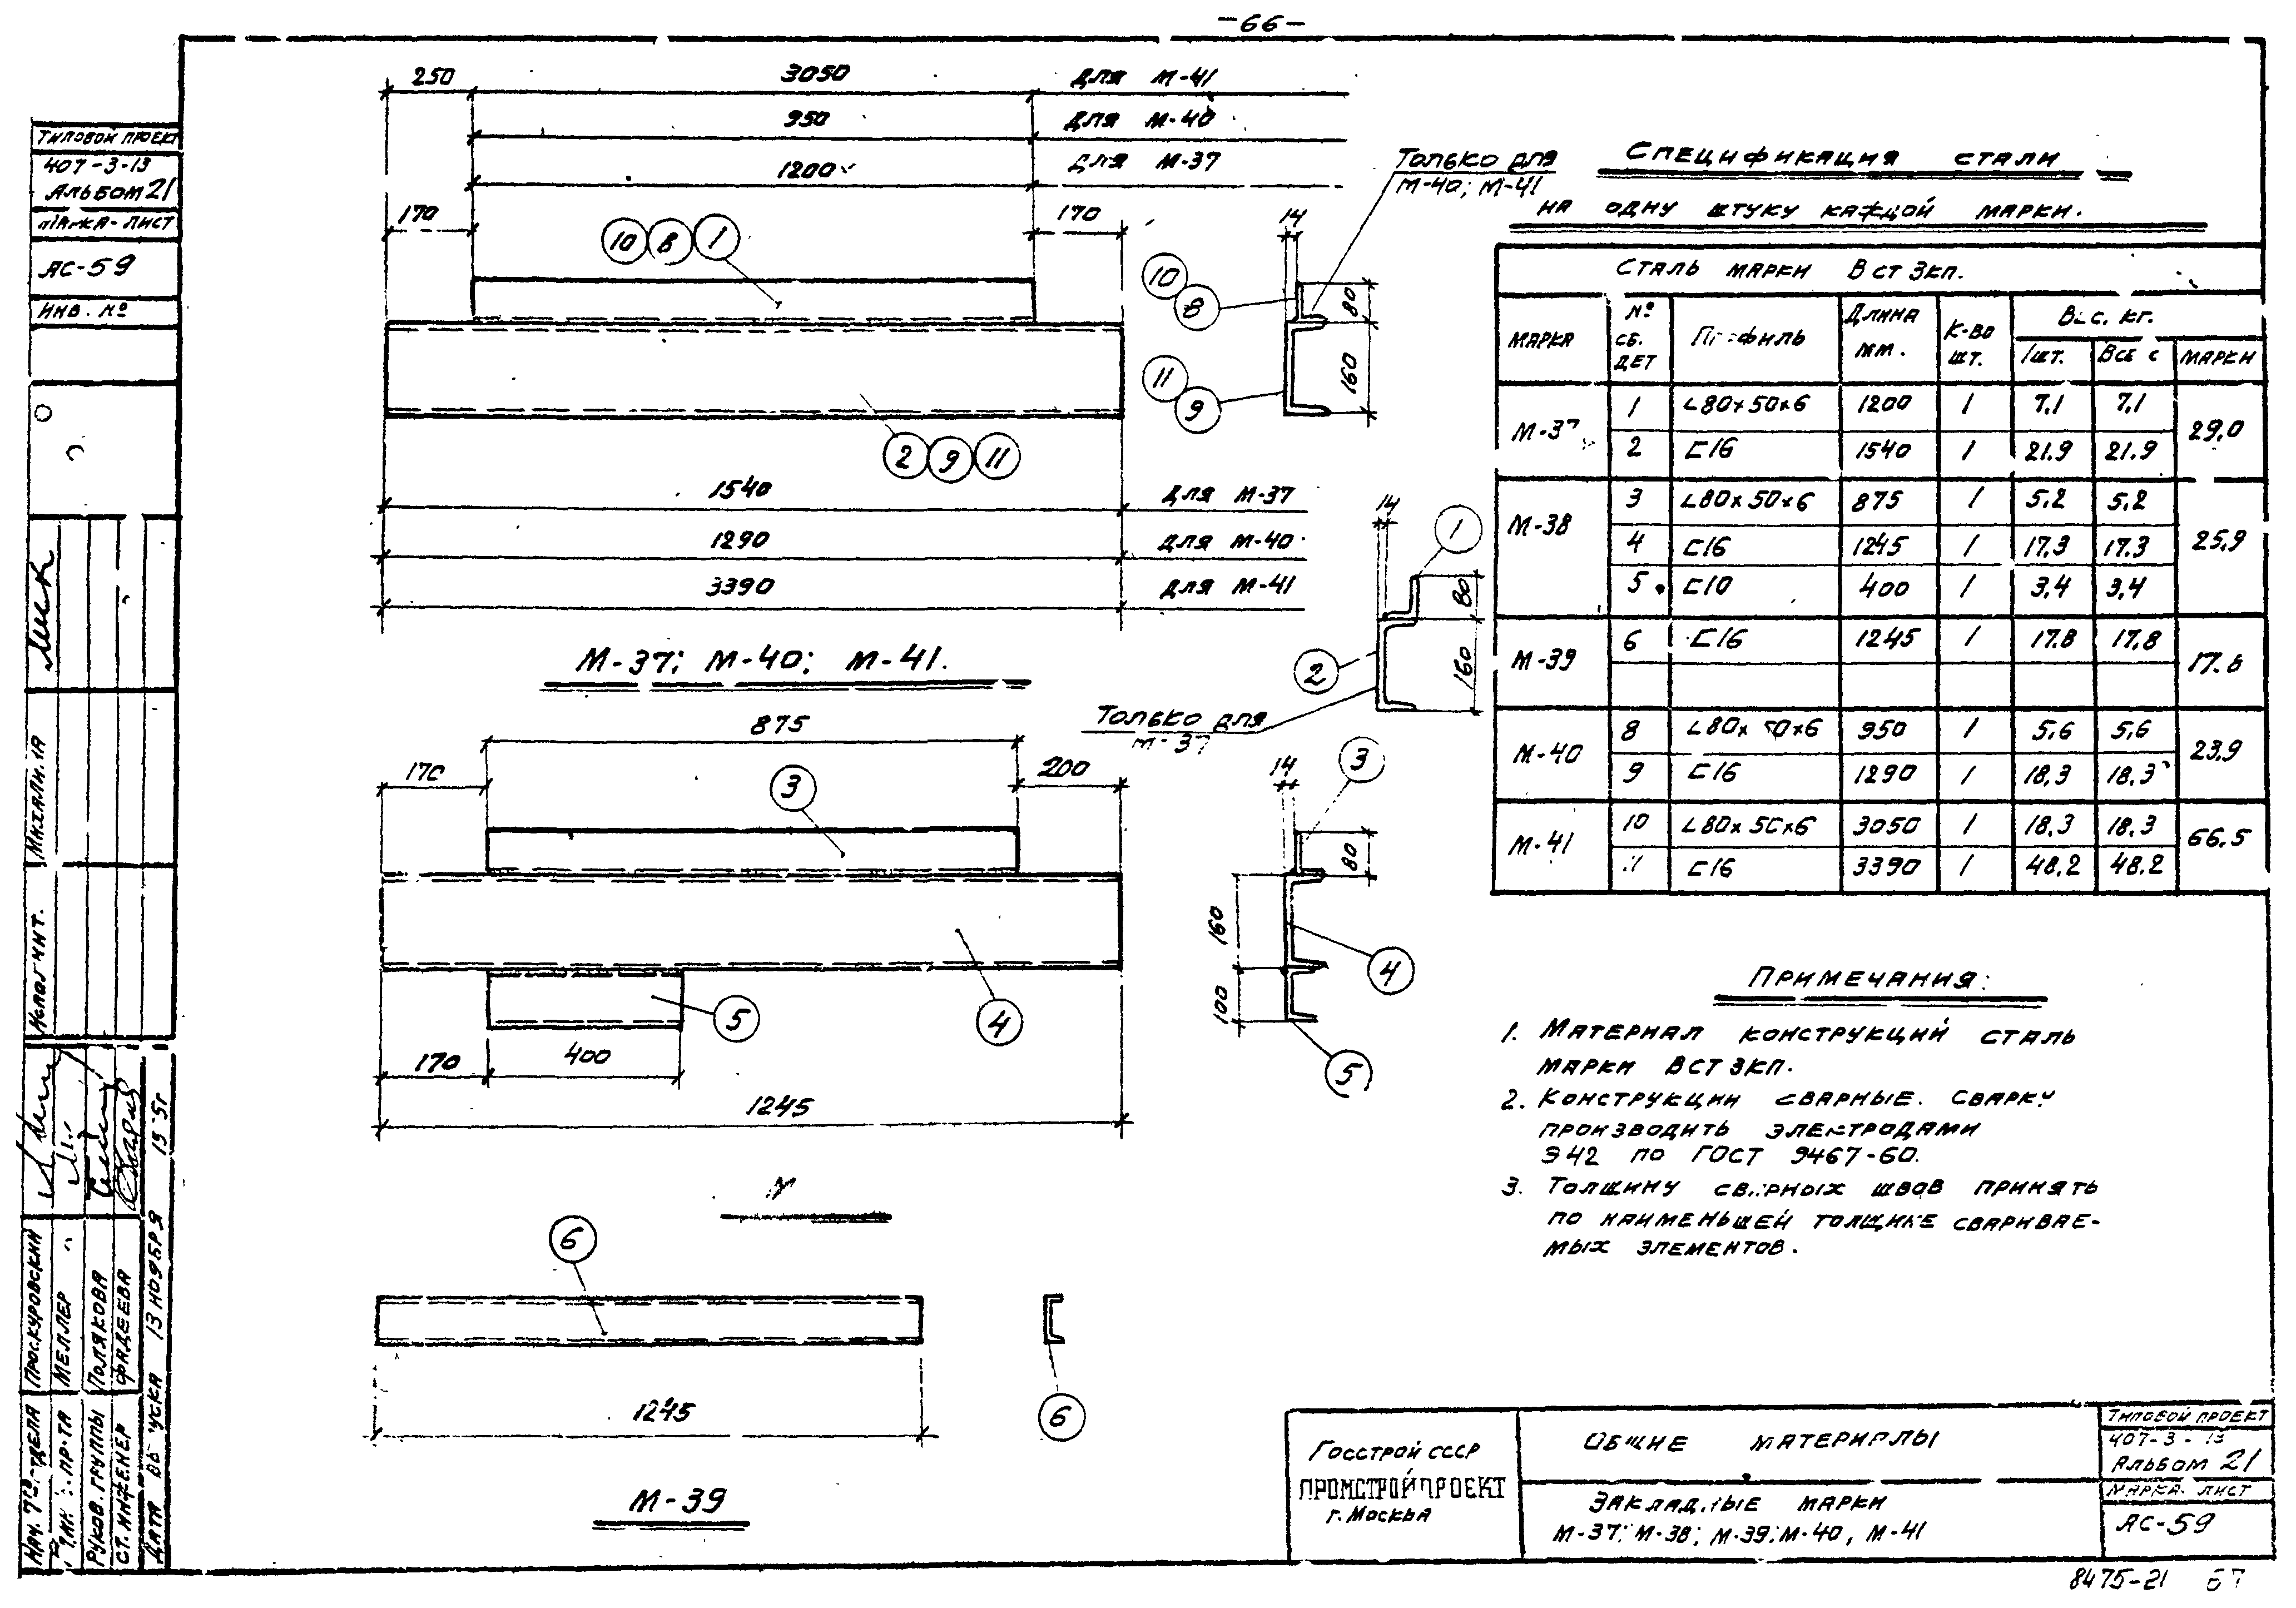 -66-
ТИПОВОЙ ПРОЕКТ
407-3-13
АЛЬБОМ 21
МАРКА-ЛИСТ
АС-59
ИНВ. №
250 3050 ДЛЯ М-41
950 ДЛЯ М-40
1200 ДЛЯ М-37
170 170
10 8 1
14
ТОЛЬКО ДЛЯ
М-40; М-41
10
8
80
11
9
160
2 9 11
1540 ДЛЯ М-37
1290 ДЛЯ М-40
3390 ДЛЯ М-41
М-37; М-40; М-41.
14
1
80
2
160
ТОЛЬКО ДЛЯ
М-37
875
170 200
3
14
3
80
160
4
100
5
5
4
170 400
1245
6
1245
6
М-39
СПЕЦИФИКАЦИЯ СТАЛИ
НА ОДНУ ШТУКУ КАЖДОЙ МАРКИ.
СТАЛЬ МАРКИ В СТ 3КП.
МАРКА № СБ. ДЕТ ПРОФИЛЬ ДЛИНА ММ. К-ВО ШТ. ВЕС. КГ.
1 ШТ. ВСЕХ МАРКИ
М-37 1 L80×50×6 1200 1 7,1 7,1 29,0
2 С16 1540 1 21.9 21.9
М-38 3 L80×50×6 875 1 5.2 5.2 25,9
4 С16 1245 1 17.3 17.3
5 С10 400 1 3,4 3,4
М-39 6 С16 1245 1 17.8 17,8 17.8
М-40 8 L80×50×6 950 1 5,6 5,6 23,9
9 С16 1290 1 18,3 18,3
М-41 10 L80×50×6 3050 1 18,3 18,3 66,5
11 С16 3390 1 48,2 48,2
ПРИМЕЧАНИЯ:
1. МАТЕРИАЛ КОНСТРУКЦИЙ СТАЛЬ
МАРКИ В СТ 3КП.
2. КОНСТРУКЦИИ СВАРНЫЕ. СВАРКУ
ПРОИЗВОДИТЬ ЭЛЕКТРОДАМИ
Э42 ПО ГОСТ 9467-60.
3. ТОЛЩИНУ СВАРНЫХ ШВОВ ПРИНЯТЬ
ПО НАИМЕНЬШЕЙ ТОЛЩИНЕ СВАРИВАЕ-
МЫХ ЭЛЕМЕНТОВ.
ГОССТРОЙ СССР
ПРОМСТРОЙПРОЕКТ
Г. МОСКВА
ОБЩИЕ МАТЕРИАЛЫ
ЗАКЛАДНЫЕ МАРКИ
М-37; М-38; М-39; М-40, М-41
ТИПОВОЙ ПРОЕКТ
407-3-13
АЛЬБОМ 21
МАРКА-ЛИСТ
АС-59
8475-21 67
ИСПОЛНИТ.
НАЧ. ОТДЕЛА ПРОСКУРОВСКИЙ
ПР-ТА МЕЛЛЕР
РУКОВ. ГРУППЫ ПОЛЯКОВА
СТ. ИНЖЕНЕР ФАДЕЕВА
ДАТА ВЫПУСКА 13 НОЯБРЯ